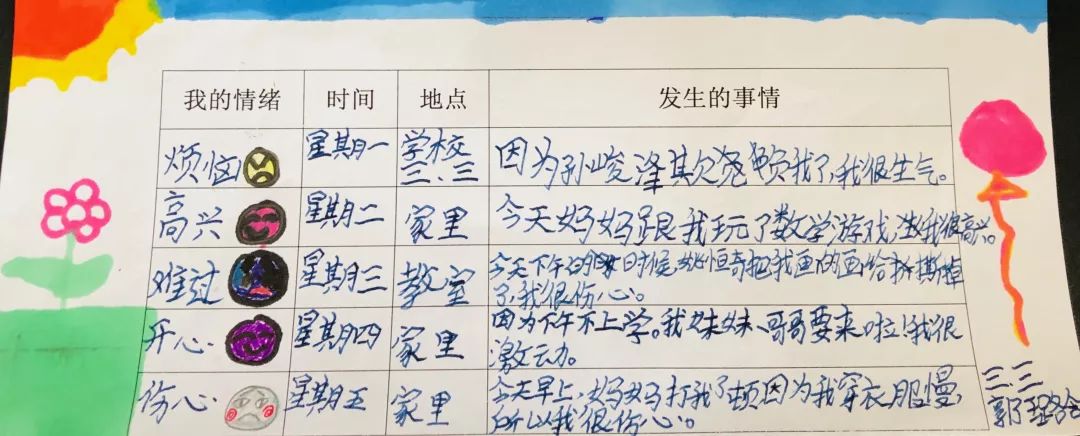 我的情绪 时间 地点 发生的事情
烦恼 星期一 学校 三、三 因为孙峻泽其欠我了,我很生气。
高兴 星期二 家里 今天妈妈跟我玩了数学游戏,我很高兴。
难过 星期三 教室 今天下午时候,恒奇把我画的画给撕掉
了,我很伤心。
开心 星期四 家里 因为下午不上学。我妹妹、哥哥要来啦!我很
激动。
伤心 星期五 家里 今天早上,妈妈打我了顿因为我穿衣服慢,
所以我很伤心。
三、三
郭